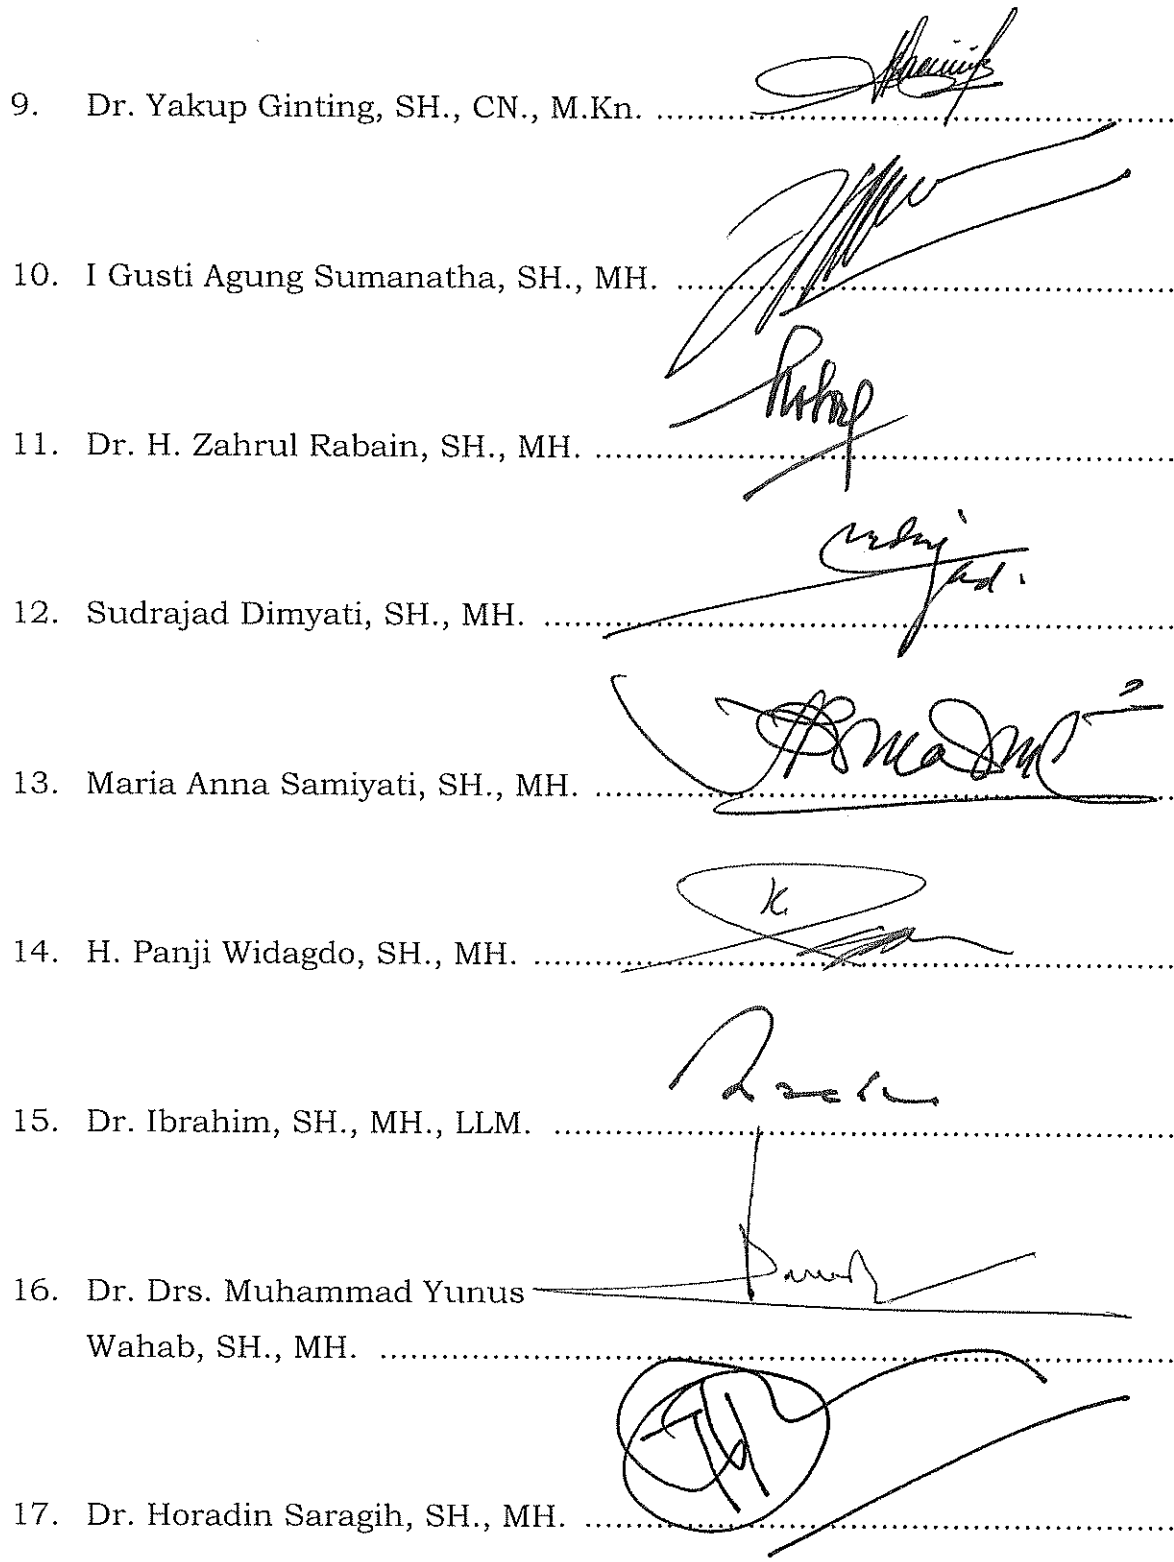 9. Dr. Yakup Ginting, SH., CN., M.Kn. ........................................................
10. I Gusti Agung Sumanatha, SH., MH. ........................................................
11. Dr. H. Zahrul Rabain, SH., MH. ........................................................
12. Sudrajad Dimyati, SH., MH. ........................................................
13. Maria Anna Samiyati, SH., MH. ........................................................
14. H. Panji Widagdo, SH., MH. ........................................................
15. Dr. Ibrahim, SH., MH., LLM. ........................................................
16. Dr. Drs. Muhammad Yunus
Wahab, SH., MH. ........................................................
17. Dr. Horadin Saragih, SH., MH. ........................................................